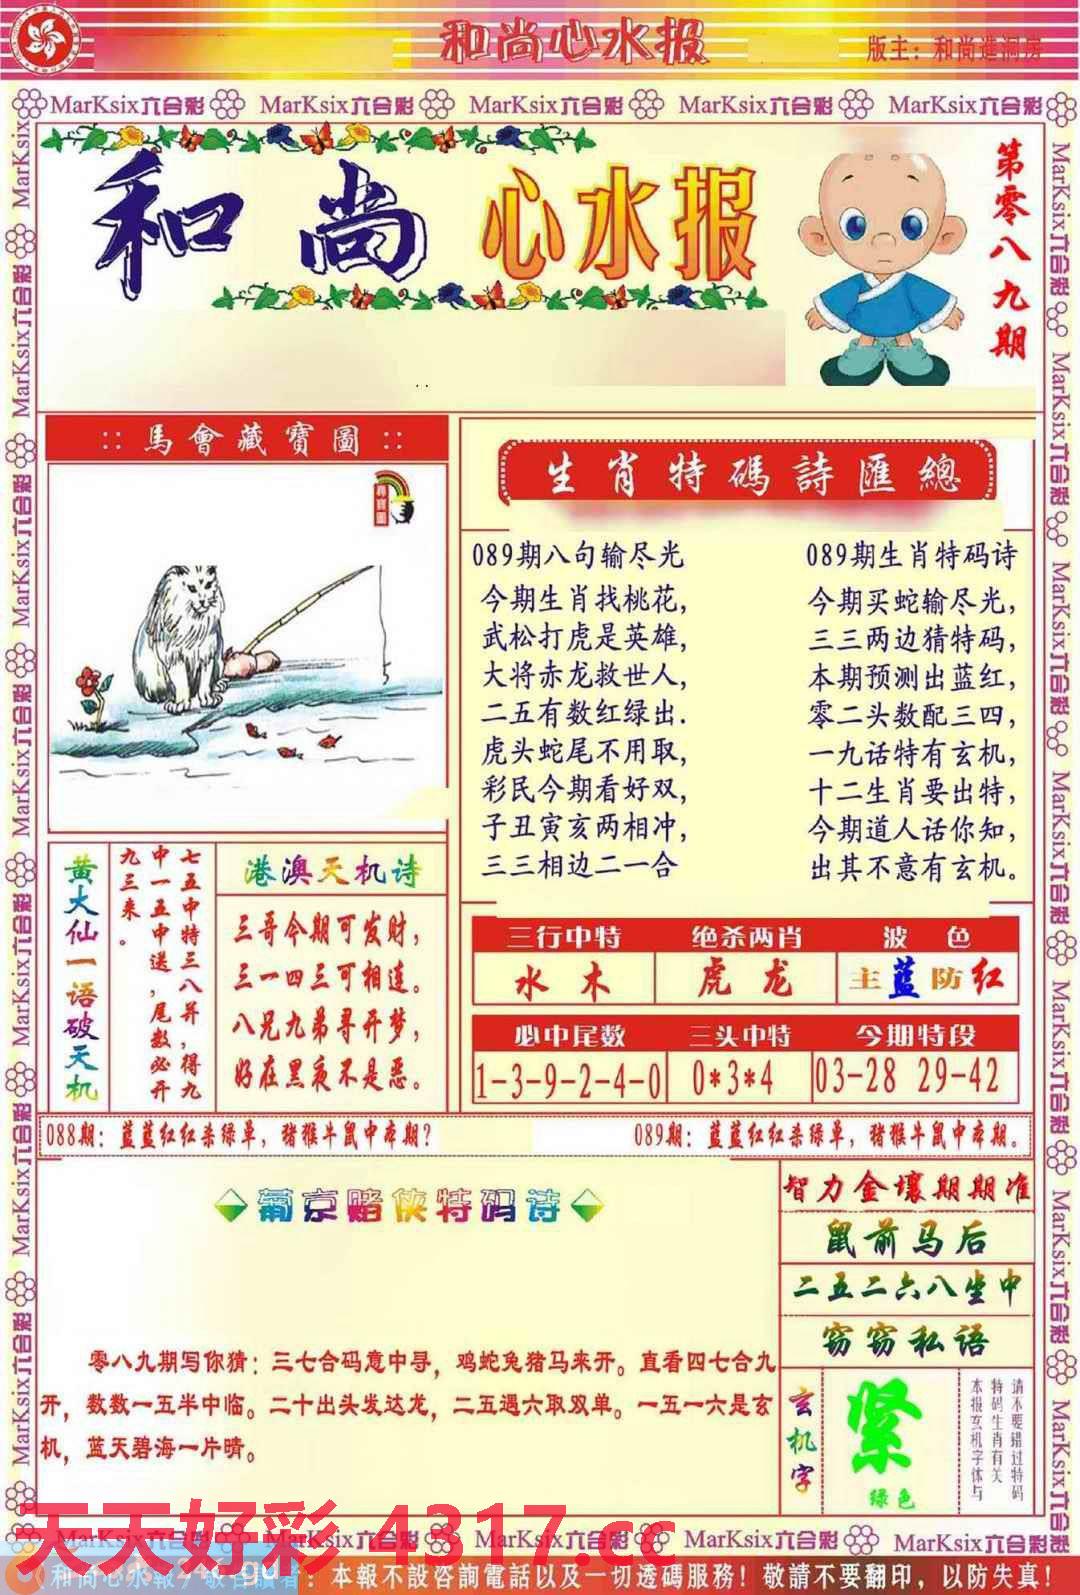 和尚心水报
版主：和尚進洞房
MarKsix六合彩 MarKsix六合彩 MarKsix六合彩 MarKsix六合彩 MarKsix六合彩
和尚心水报
第零八九期
:: 馬會藏寶圖 ::
尋寶圖
生肖特碼詩匯總
089期八句输尽光
今期生肖找桃花，
武松打虎是英雄，
大将赤龙救世人，
二五有数红绿出.
虎头蛇尾不用取，
彩民今期看好双，
子丑寅亥两相冲，
三三相边二一合
089期生肖特码诗
今期买蛇输尽光，
三三两边猜特码，
本期预测出蓝红，
零二头数配三四，
一九话特有玄机，
十二生肖要出特，
今期道人话你知，
出其不意有玄机。
黄大仙一语破天机
七五中特三八并，得九
中一五中送，尾数必开
九三来。
港澳天机诗
三哥今期可发财，
三一四三可相连。
八兄九弟寻开梦，
好在黑夜不是恶。
三行中特 绝杀两肖 波色
水木 虎龙 主蓝防红
必中尾数 三头中特 今期特段
1-3-9-2-4-0 0*3*4 03-28 29-42
088期：蓝蓝红红杀绿单，猪猴牛鼠中本期？
089期：蓝蓝红红杀绿单，猪猴牛鼠中本期。
葡京赌侠特码诗
零八九期写你猜：三七合码意中寻，鸡蛇兔猪马来开。直看四七合九
开，数数一五半中临。二十出头发达龙，二五遇六取双单。一五一六是玄
机，蓝天碧海一片晴。
智力金壤期期准
鼠前马后
二五二六八坐中
窃窃私语
玄机字
紧
绿色
请不要错过特码
特码生肖有关
本报玄机字体与
天天好彩 4317.cc
MarKsix六合彩 MarKsix六合彩 MarKsix六合彩 MarKsix六合彩 MarKsix六合彩
和尚心水報/敬告讀者：本報不設咨詢電話以及一切透碼服務！敬請不要翻印，以防失真！